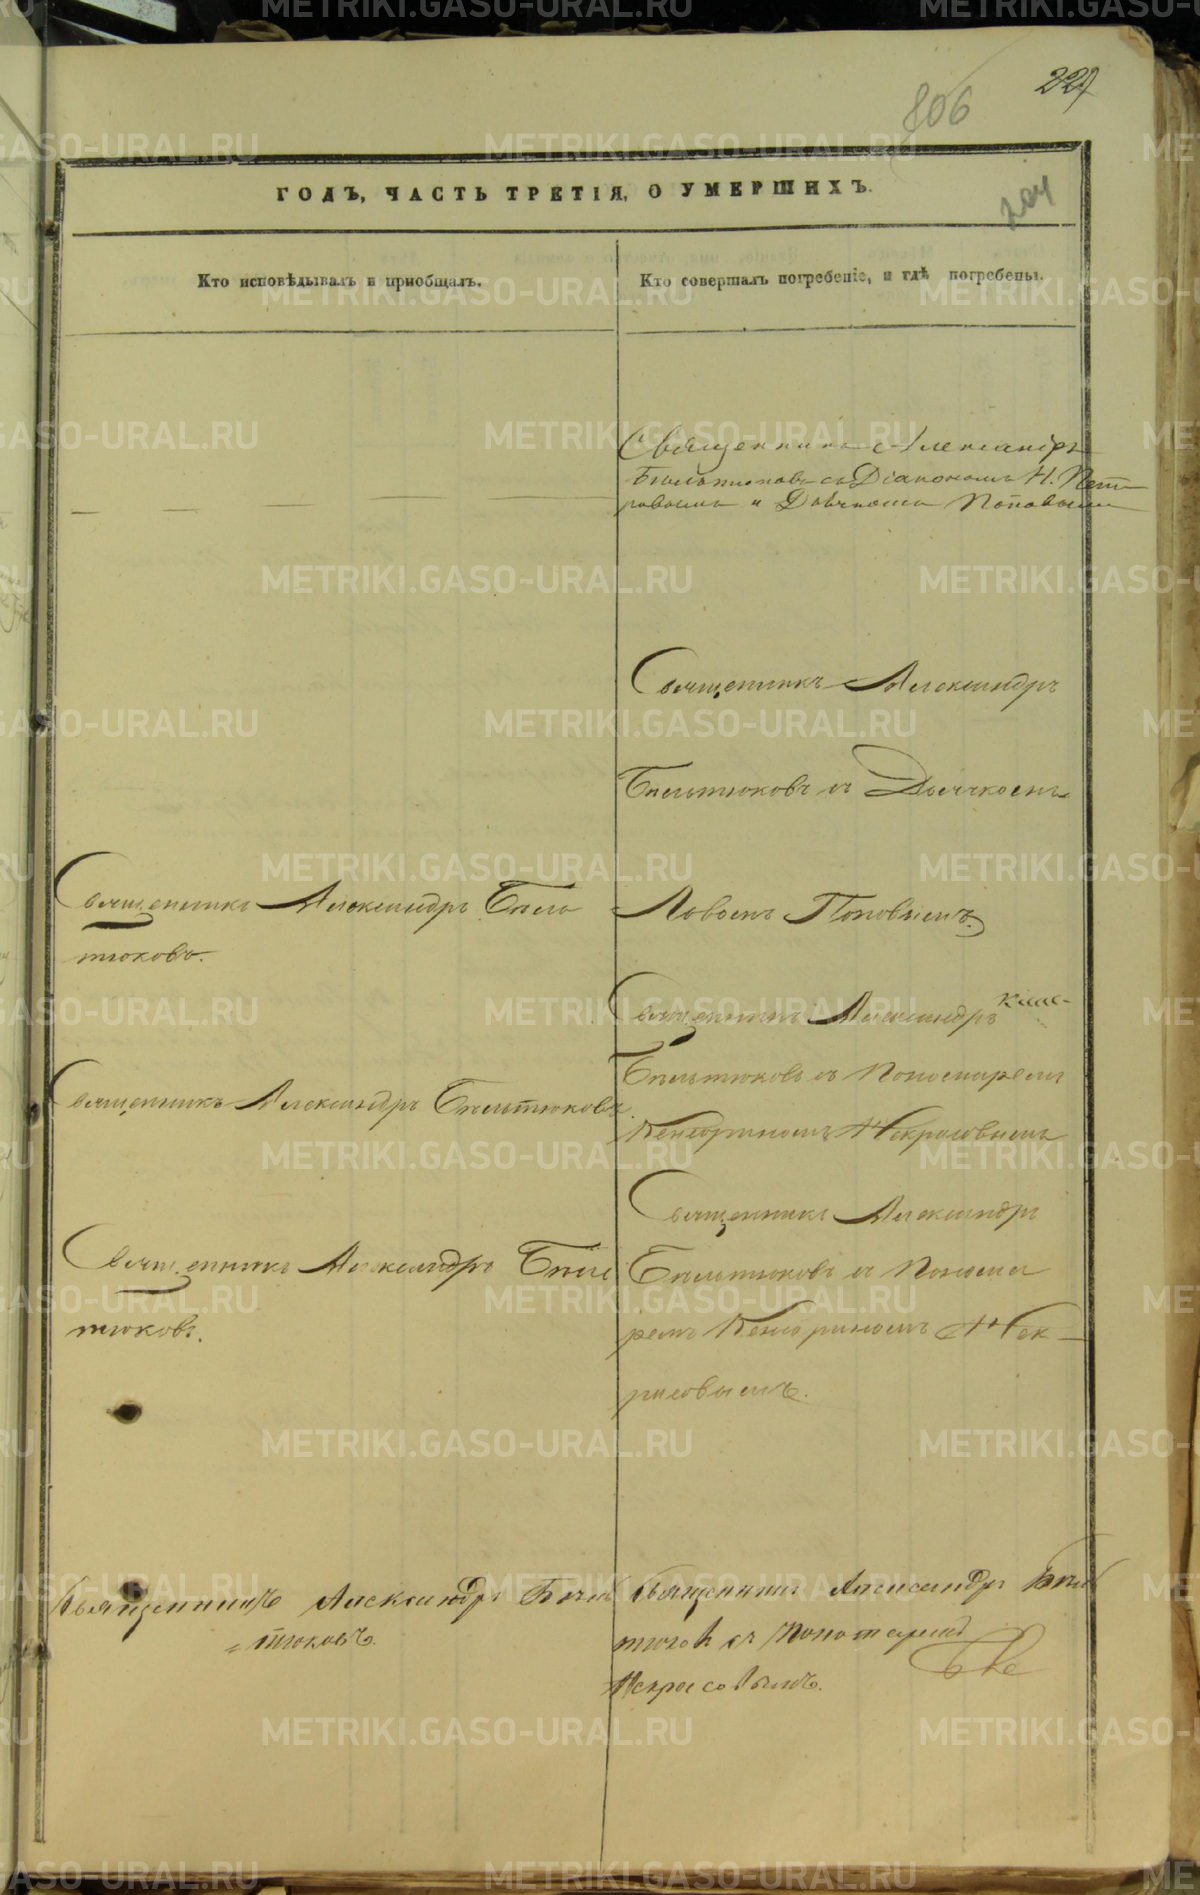 806
227
ГОДЪ, ЧАСТЬ ТРЕТІЯ, О УМЕРШИХЪ.
204
Кто исповѣдывалъ и пріобщалъ.
Кто совершалъ погребеніе, и гдѣ погребены.
Священникъ Александръ
Бѣльтюковъ съ Діакономъ Н. Пет
ровымъ и Дьячкомъ Поповымъ
Священникъ Александръ
Бѣльтюковъ съ Дьячкомъ
Поповымъ.
Священникъ Александръ Бѣль
тюковъ.
Священникъ Александръ
Бѣльтюковъ съ Пономаремъ
Некрасовымъ
Священникъ Александръ Бѣльтюковъ.
Священникъ Александръ
Бѣльтюковъ съ Понома
ремъ Нек-
расовымъ.
Священникъ Александръ Бѣль
тюковъ.
Священникъ Александръ Бѣль
тюковъ.
Священникъ Александръ Бѣль
съ Пономаремъ
Некрасовымъ.
METRIKI.GASO-URAL.RU